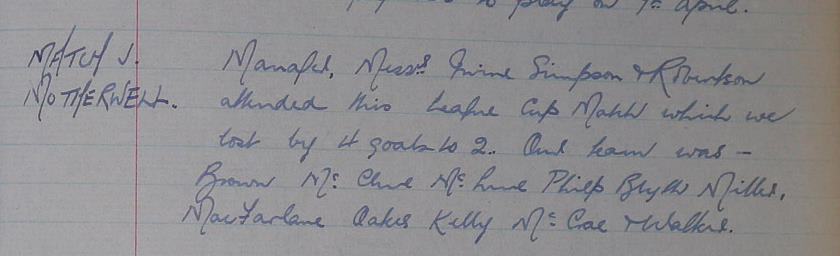 to play on 7th April.
MATCH V.
MOTHERWELL.
Manager, Messrs Irvine Simpson & Robertson
attended this League Cup Match which we
lost by 4 goals to 2. Our team was -
Brown Mc Clure Mc Lure Philp Blyth Miller,
MacFarlane Oakes Kelly Mc Crae & Walker.